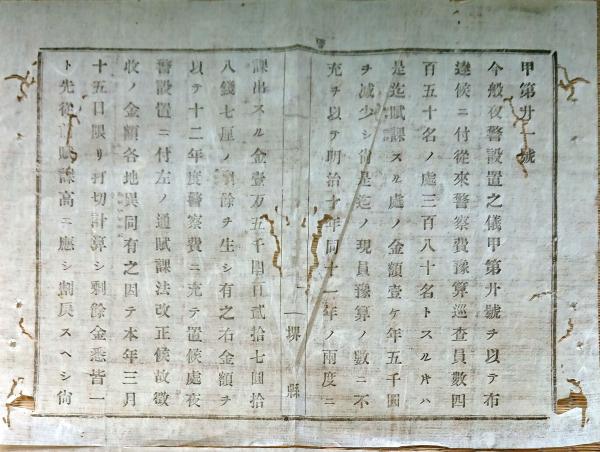 甲第廿一號
今般夜警設置之儀甲第廿號ヲ以テ布
達候ニ付從來警察費豫算巡査員數四
百五十名ノ處三百八十名トスル片ハ
是迄賦課スル處ノ金額壹ケ年五千圓
ヲ減少シ尙是迄ノ現員豫算ノ數ニ不
充チ以テ明治十年同十一年ノ兩度ニ
堺縣
課出スル金壹万五千四百貳拾七圓拾
八錢七厘ノ剩餘ヲ生シ有之右金額ヲ
以テ十二年度警察費ニ充テ置候處夜
警設置ニ付左ノ通賦課法改正候故徵
收ノ金額各地異同有之因テ本年三月
十五日限リ打切計算シ剩餘金悉皆一
ト先從前賦課高ニ應シ割戻スヘシ尙